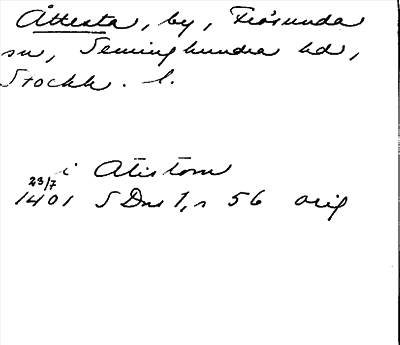 Åttesta, by, Frösunda
sn, Seminghundra hd,
Stockh. l.
i Atistom
23/7
1401 SDns 1, s 56 orig